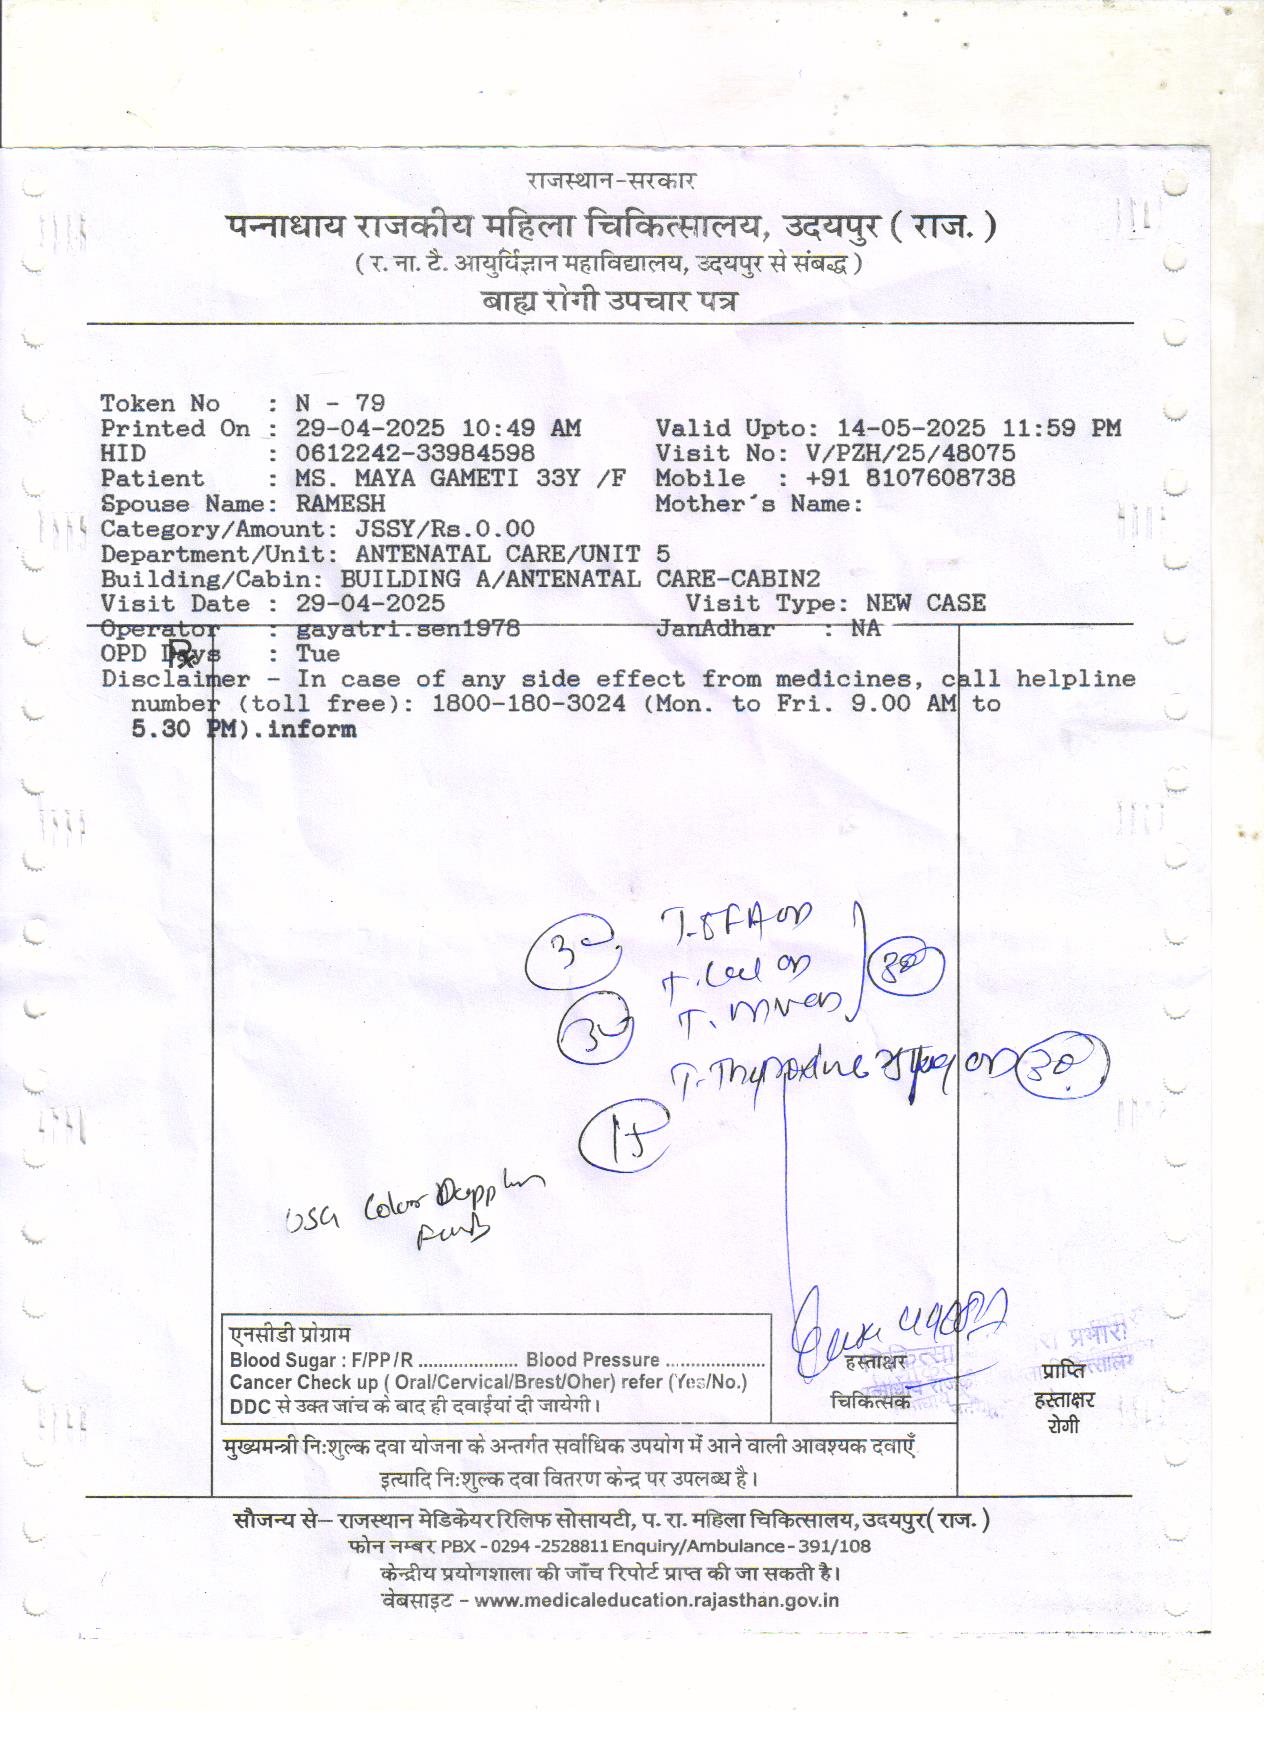 राजस्थान-सरकार
पन्नाधाय राजकीय महिला चिकित्सालय, उदयपुर ( राज. )
( र. ना. टै. आयुर्विज्ञान महाविद्यालय, उदयपुर से संबद्ध )
बाह्य रोगी उपचार पत्र
Token No : N - 79
Printed On : 29-04-2025 10:49 AM Valid Upto: 14-05-2025 11:59 PM
HID : 0612242-33984598 Visit No: V/PZH/25/48075
Patient : MS. MAYA GAMETI 33Y /F Mobile : +91 8107608738
Spouse Name: RAMESH Mother's Name:
Category/Amount: JSSY/Rs.0.00
Department/Unit: ANTENATAL CARE/UNIT 5
Building/Cabin: BUILDING A/ANTENATAL CARE-CABIN2
Visit Date : 29-04-2025 Visit Type: NEW CASE
Operator : gayatri.sen1978 JanAdhar : NA
OPD Days : Tue
Rx
Disclaimer - In case of any side effect from medicines, call helpline
number (toll free): 1800-180-3024 (Mon. to Fri. 9.00 AM to
5.30 PM).inform
30 T. OD
T. OD 30
30 T. OD
T. Thyroxine OD 30
15
USG Color Doppler
एनसीडी प्रोग्राम
Blood Sugar : F/PP/R .................... Blood Pressure ....................
Cancer Check up ( Oral/Cervical/Brest/Oher) refer (Yes/No.)
DDC से उक्त जांच के बाद ही दवाईयां दी जायेगी।
हस्ताक्षर
चिकित्सक
प्राप्ति
हस्ताक्षर
रोगी
मुख्यमन्त्री निःशुल्क दवा योजना के अन्तर्गत सर्वाधिक उपयोग में आने वाली आवश्यक दवाएँ
इत्यादि निःशुल्क दवा वितरण केन्द्र पर उपलब्ध है।
सौजन्य से– राजस्थान मेडिकेयर रिलिफ सोसायटी, प. रा. महिला चिकित्सालय, उदयपुर( राज. )
फोन नम्बर PBX - 0294 -2528811 Enquiry/Ambulance - 391/108
केन्द्रीय प्रयोगशाला की जाँच रिपोर्ट प्राप्त की जा सकती है।
वेबसाइट - www.medicaleducation.rajasthan.gov.in